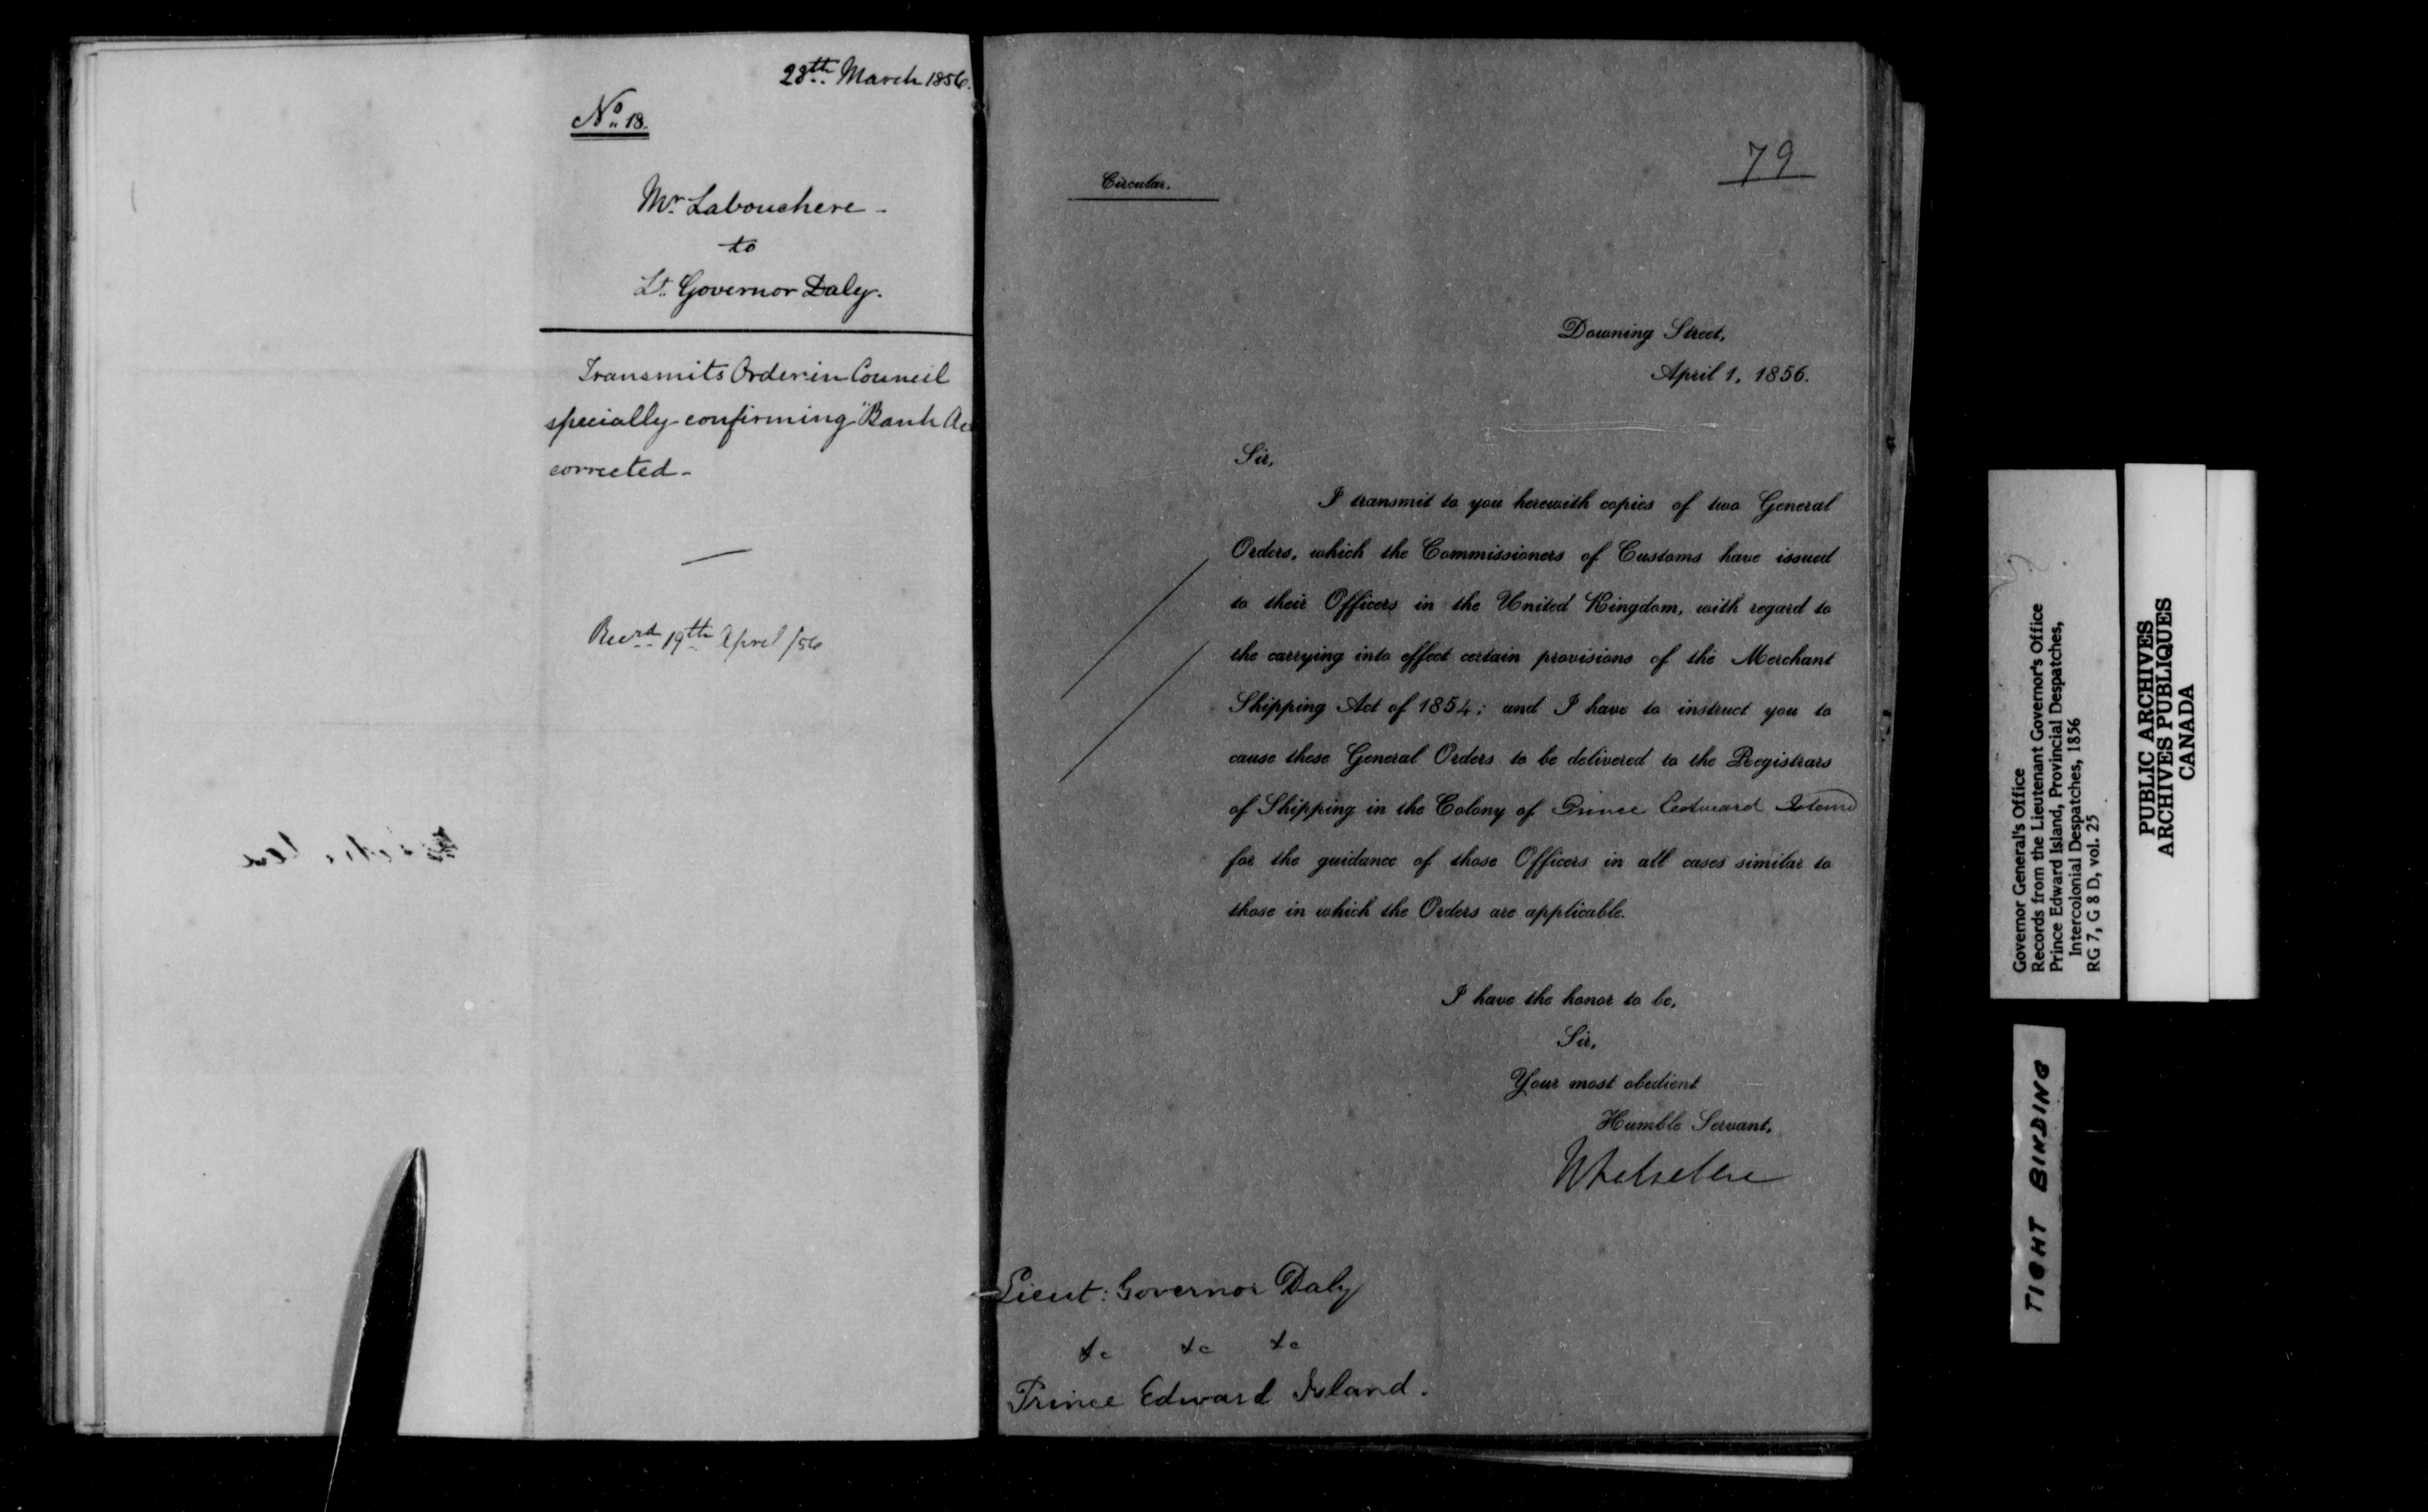 28th March 1856.
No. 18.
Mr. Labouchere -
to
Lt. Governor Daly.
Transmits Order in Council
specially confirming "Bank Ac
corrected -
Recvd 19th April /56
79
Circular.
Downing Street,
April 1, 1856.
Sir,
I transmit to you herewith copies of two General
Orders, which the Commissioners of Customs have issued
to their Officers in the United Kingdom, with regard to
the carrying into effect certain provisions of the Merchant
Shipping Act of 1854; and I have to instruct you to
cause these General Orders to be delivered to the Registrars
of Shipping in the Colony of Prince Edward Island
for the guidance of those Officers in all cases similar to
those in which the Orders are applicable.
I have the honor to be,
Sir,
Your most obedient
Humble Servant,
Lieut: Governor Daly
&c &c &c
Prince Edward Island.
Governor General's Office
Records from the Lieutenant Governor's Office
Prince Edward Island, Provincial Despatches,
Intercolonial Despatches, 1856
RG 7, G 8 D, vol. 25
PUBLIC ARCHIVES
ARCHIVES PUBLIQUES
CANADA
TIGHT BINDING